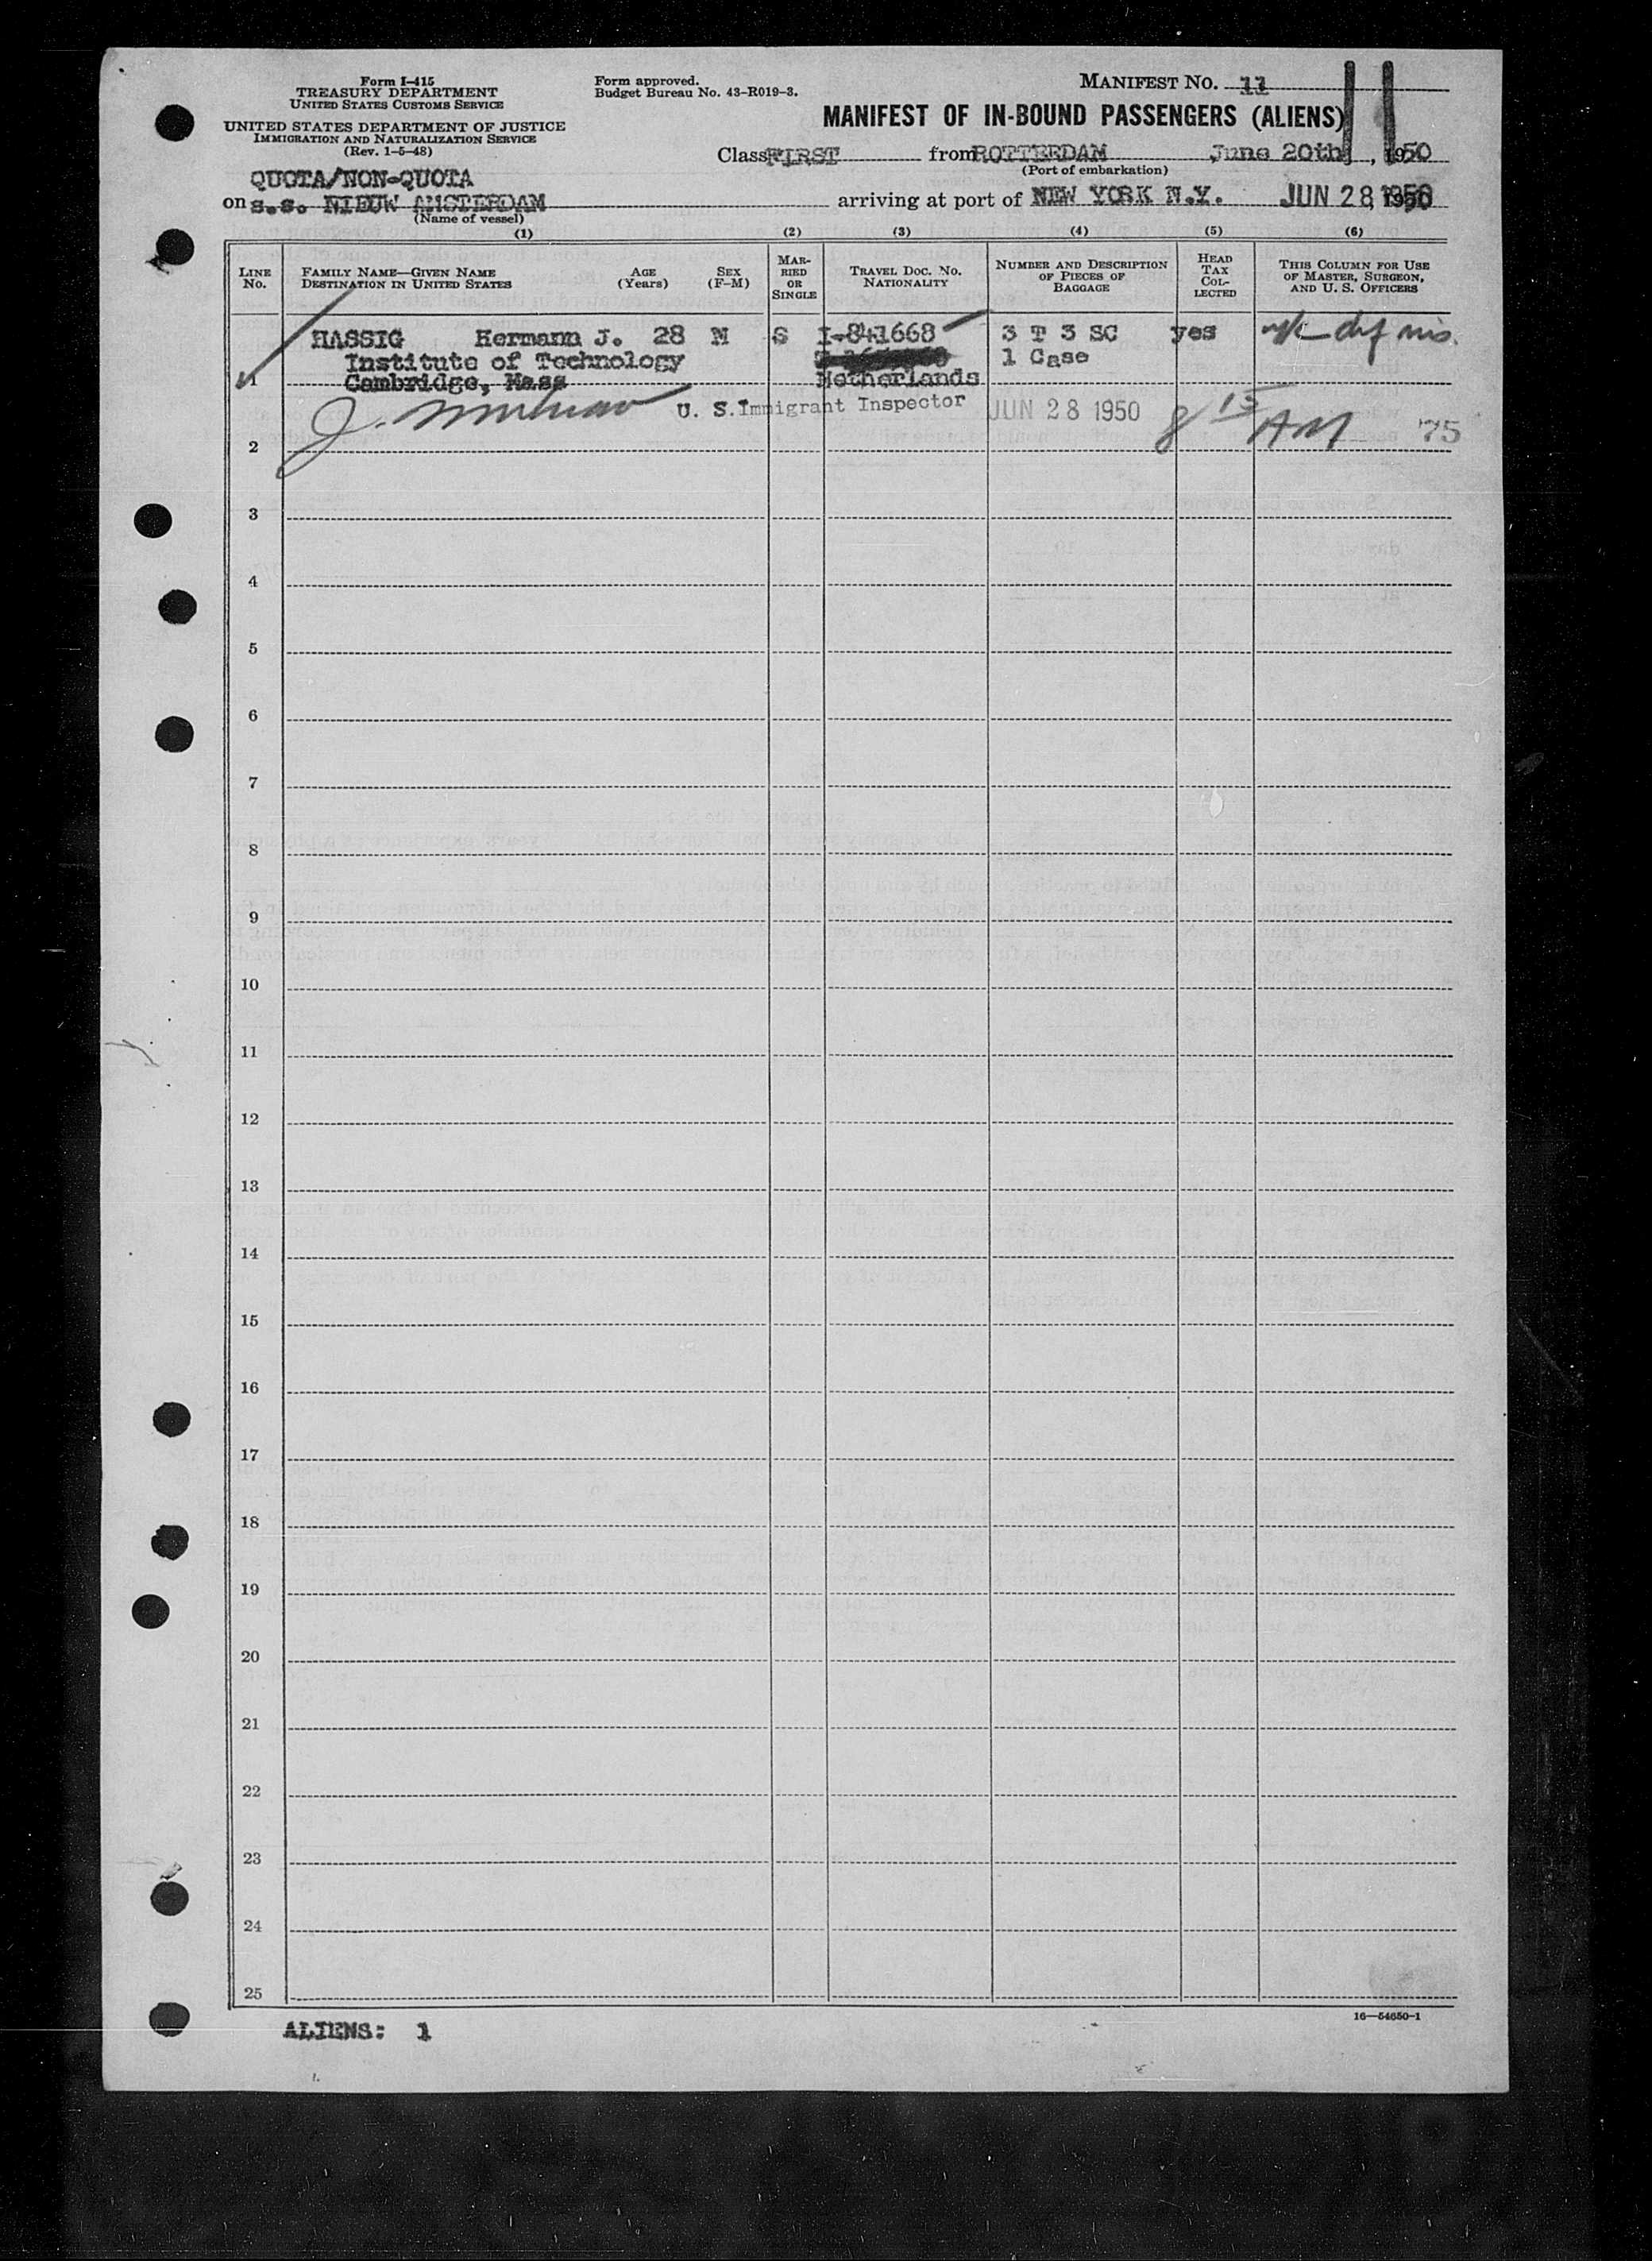 Form I-415
TREASURY DEPARTMENT
UNITED STATES CUSTOMS SERVICE
UNITED STATES DEPARTMENT OF JUSTICE
IMMIGRATION AND NATURALIZATION SERVICE
(Rev. 1-5-48)
Form approved.
Budget Bureau No. 43-R019-3.
MANIFEST NO. 11
11
MANIFEST OF IN-BOUND PASSENGERS (ALIENS)
Class FIRST from ROTTERDAM June 20th, 1950
(Port of embarkation)
QUOTA/NON-QUOTA
on s.s. NIEUW AMSTERDAM arriving at port of NEW YORK N.Y. JUN 28, 1950
(Name of vessel)
(1) (2) (3) (4) (5) (6)
LINE No. FAMILY NAME—GIVEN NAME DESTINATION IN UNITED STATES AGE (Years) SEX (F-M) MARRIED OR SINGLE TRAVEL DOC. NO. NATIONALITY NUMBER AND DESCRIPTION OF PIECES OF BAGGAGE HEAD TAX COLLECTED THIS COLUMN FOR USE OF MASTER, SURGEON, AND U. S. OFFICERS
HASSIG Hermann J. 28 M S I-841668 3 T 3 SC yes
Institute of Technology 1 Case
1 Cambridge, Mass Netherlands
U. S. Immigrant Inspector JUN 28 1950 8 15 AM 75
2
3
4
5
6
7
8
9
10
11
12
13
14
15
16
17
18
19
20
21
22
23
24
25
16—54650-1
ALIENS: 1